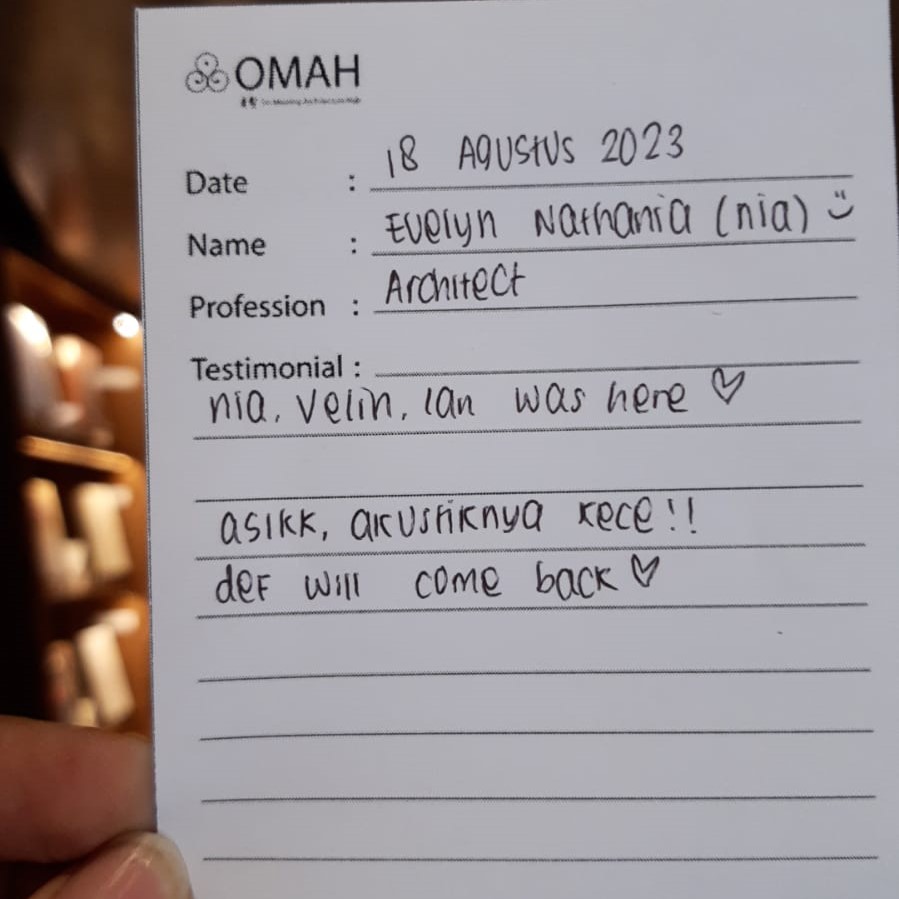 OMAH
Date : 18 AGUSTUS 2023
Name : Evelyn Nathania (nia)
Profession : Architect
Testimonial :
nia, velin, ian was here ♡
asikk, akustiknya kece!!
def will come back ♡